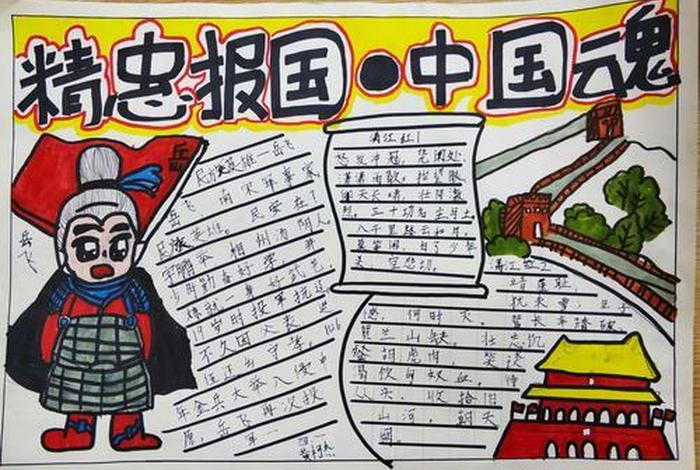 精忠报国·中国魂
岳
岳飞
民族英雄—岳飞
岳飞 南宋军事家
民族英雄。
字鹏举 相州汤阴人
少时勤奋好学,并
炼就一身好武艺
19岁时投军抗辽
不久因父丧,退
伍还乡守孝。1126
年金兵大举入侵中
原,岳飞再次投
军…
满江红1
怒发冲冠,凭阑处、
潇潇雨歇,抬望眼
仰天长啸,壮怀激
烈。三十功名尘与土
八千里路云和月。
莫等闲,白了少年
头,空悲切。
满江红2
靖康耻,
犹未雪,臣子
恨,何时灭。驾长车踏破
贺兰山缺。壮志饥
餐胡虏肉,笑谈
渴饮匈奴血。待
从头,收拾旧
山河,朝天
阙。